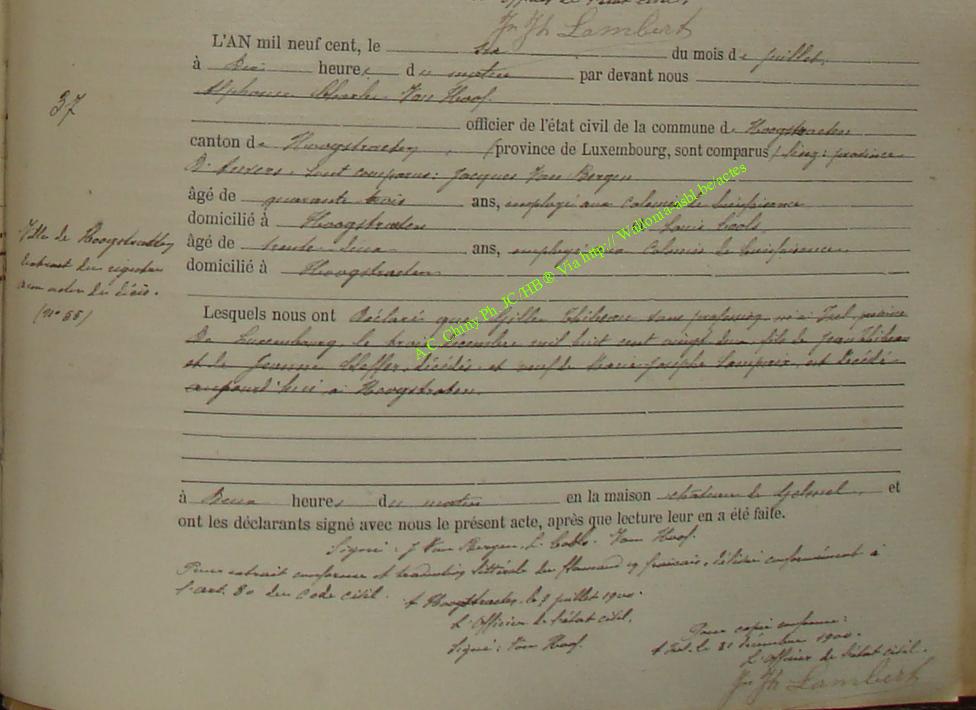 officier de l'état civil.
Jn Jh Lambert
L'AN mil neuf cent, le six du mois de juillet,
à Dix heures du matin par devant nous
Alphonse Charles Van Hoof
37
officier de l'état civil de la commune de Hoogstraeten
canton de Hoogstraeten (province de Luxembourg, sont comparus) province
D'Anvers, sont comparus: Jacques Van Bergen
âgé de quarante trois ans, employé aux Colonies de bienfaisance
domicilié à Hoogstraeten et Louis
âgé de trente ans, employé aux Colonies de bienfaisance
domicilié à Hoogstraeten
Ville de Hoogstraeten
Extrait du registre
aux actes de décès.
(N° 55)
Lesquels nous ont Déclaré que Gilles Thibeau sans profession né à Izel, province
De Luxembourg, le trois décembre mil huit cent vingt deux, fils de Jean Thibeau
et de Jeanne décédés, et veuf de Marie-Josèphe est décédé
aujourd'hui à Hoogstraeten.
à Deux heures du matin en la maison château de et
ont les déclarants signé avec nous le présent acte, après que lecture leur en a été faite.
Signé: J Van Bergen, L. Van Hoof.
Pour extrait conforme et traduction littérale du flamand en français, délivré conformément à
l'art. 80 du Code civil. A Hoogstraeten, le juillet 1900.
L'Officier de l'état civil,
Signé: Van Hoof.
Pour copie conforme:
A Izel, le 31 décembre 1900.
L'Officier de l'état civil.
Jn Jh Lambert
A.C. Chiny Ph. JC/HB® Via http://Wallonia-asbl.be/actes